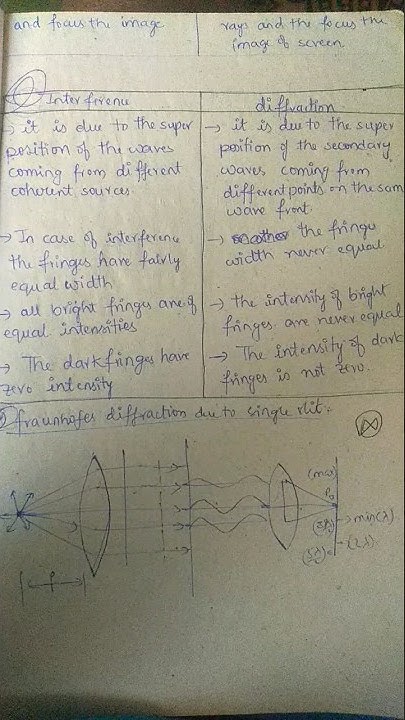 and focus the image
rays and the focus the
image of screen
Interference
diffraction
→ it is due to the super
position of the waves
coming from different
coherent sources.
→ it is due to the super
position of the secondary
waves coming from
different points on the same
wave front.
→ In case of interference
the fringes have fairly
equal width
→ the fringe
width never equal
→ all bright fringes are of
equal intensities
→ the intensity of bright
fringes are never equal
→ The dark fringes have
zero intensity
→ The intensity of dark
fringes is not zero.
fraunhofer diffraction due to single slit.
(max)
P₀
min(λ)
(2λ)
f